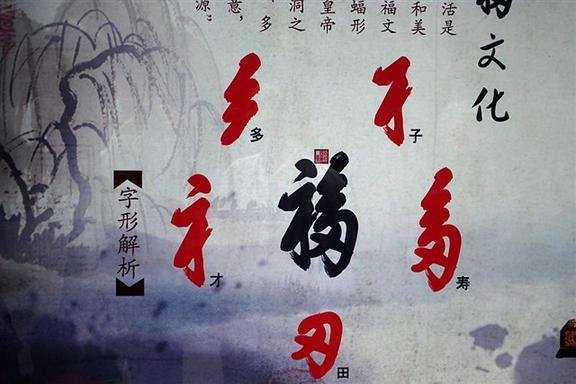 福文化
活是
和美
福文
蝠形
皇帝
洞之
，多
意，
源”
多
子
福
才
寿
田
字形解析